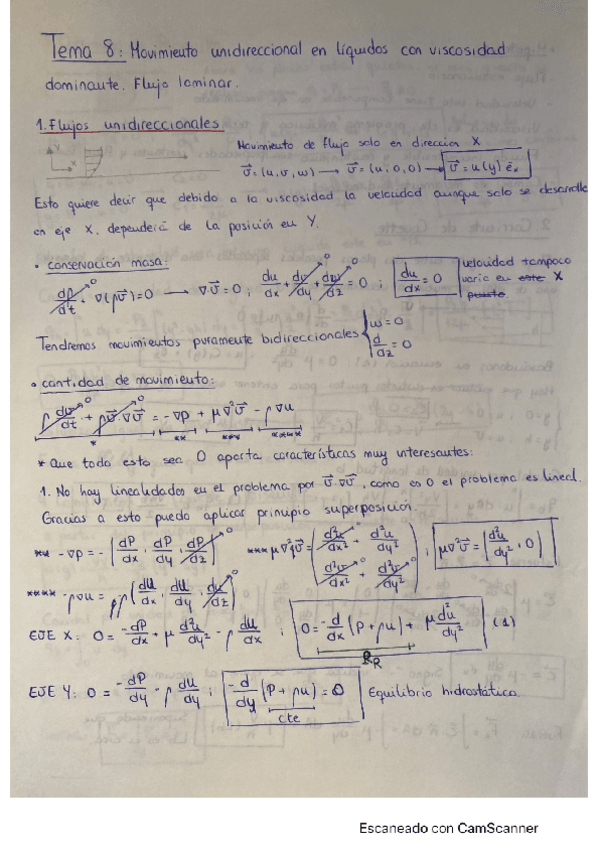 Tema 8: Movimiento unidireccional en líquidos con viscosidad
dominante. Flujo laminar.
1. Flujos unidireccionales
Movimiento de flujo solo en direccion X
y x v⃗ = (u, v, w) → v⃗ = (u, 0, 0) → v⃗ = u(y) ēx
Esto quiere decir que debido a la viscosidad la velocidad aunque solo se desarrolle
en eje X, dependerá de la posición en Y.
• conservación masa:
dρ/dt + ∇(ρv⃗) = 0 → ∇v⃗ = 0 ; du/dx + dv/dy + dw/dz = 0 ; du/dx = 0 velocidad tampoco varia en este X punto
Tendremos movimientos puramente bidireccionales { w = 0 d/dz = 0
• cantidad de movimiento:
ρ dv/dt + ρv⃗·∇v⃗ = -∇p + μ∇²v⃗ - ρ∇u
* ** *** ****
* Que todo esto sea 0 aporta características muy interesantes:
1. No hay linealidades en el problema por v⃗·∇v⃗, como es 0 el problema es lineal.
Gracias a esto puedo aplicar principio superposición.
** -∇p = -(dP/dx, dP/dy, dP/dz) *** μ∇²v⃗ = (d²u/dx² + d²u/dy² d²v/dx² + d²v/dy²) ; μ∇²v⃗ = (d²u/dy², 0)
**** -ρ∇u = ρ(du/dx, du/dy, du/dz)
EJE X: 0 = -dP/dx + μ d²u/dy² - ρ du/dx ; 0 = -d/dx (P + ρu) + μ d²u/dy² (1)
PR
EJE Y: 0 = -dP/dy - ρ du/dy ; -d/dy (P + ρu) = 0 Equilibrio hidrostático.
cte
Escaneado con CamScanner